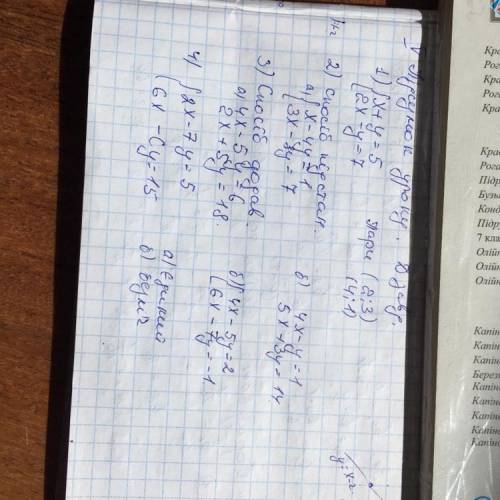 V Підсумок уроку. Д/завд.
1) { x + y = 5
2x - y = 7
Пари (2; 3)
(4; 1)
2) Спосіб підстан.
а) { x - 4y = 1
3x - 8y = 7
б) 4x - y = 1
5x + 3y = 14
3) Спосіб додав.
а) 4x - 5y = 6
2x + 5y = 18.
б) { 4x - 5y = 2
6x - 7y = -1
4) { 2x - 7y = 5
6x - Cy = 15
а) Єдиний
б) безліч
y = x - 2
Кра
Рог
Кра
Рог
Кра
Красв
Рога
Підр
Бузь
Конд
Підру
7 клас
Олійн
Олійн
Олійн
Капін
Капіно
Капіно
Березн
Капіно
Капіно
Капіно
Капіно
Капіно